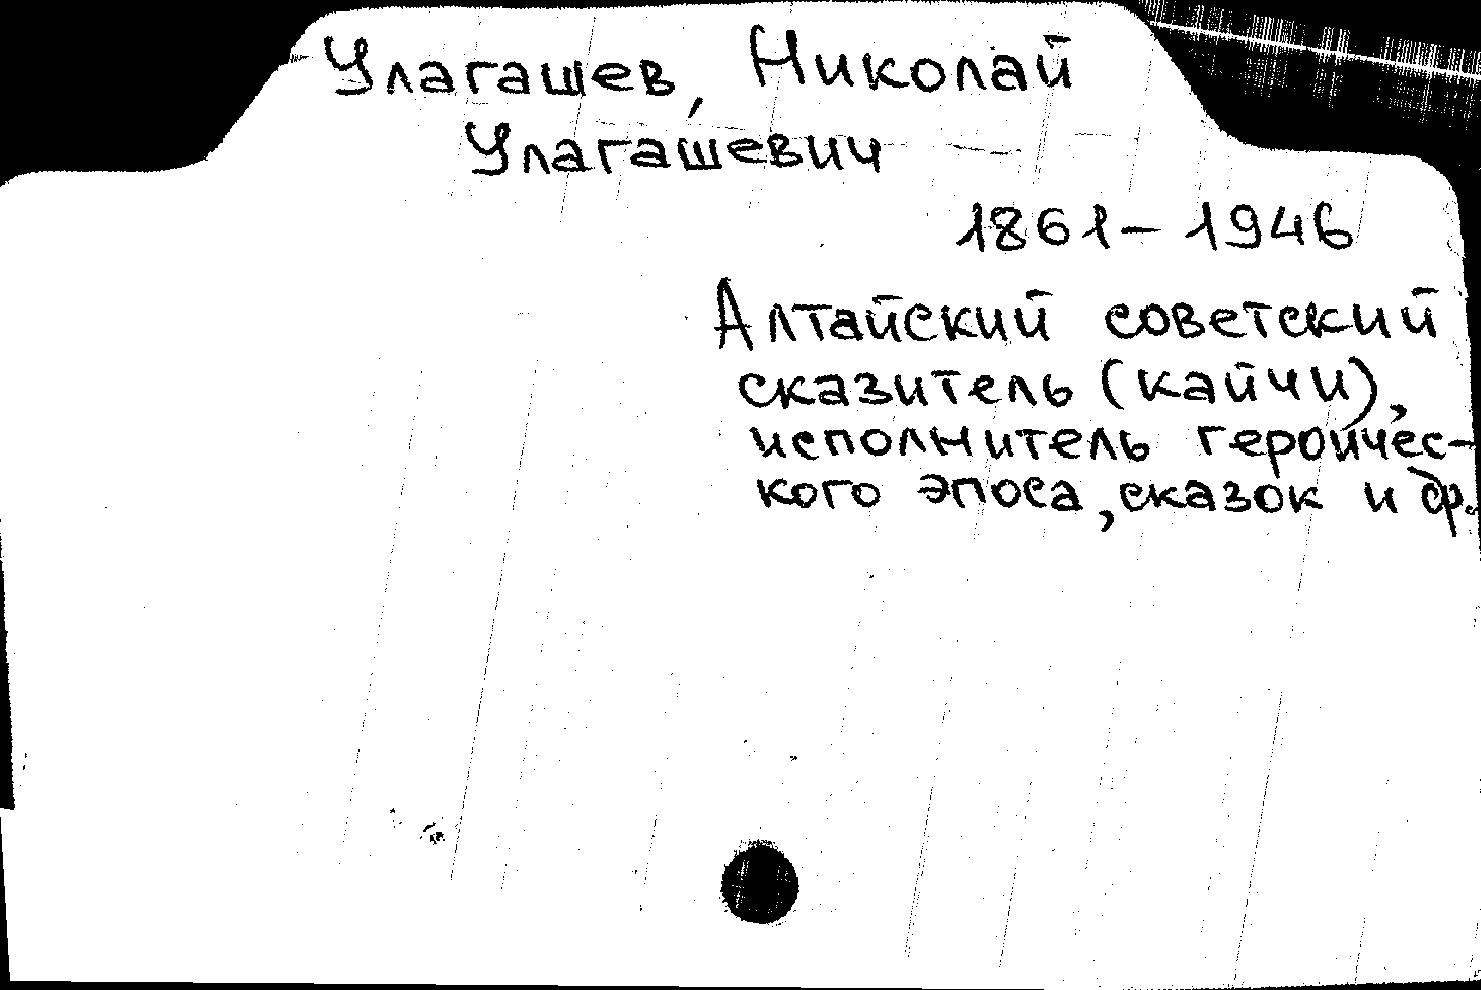 Улагашев, Николай
Улагашевич
1861 – 1946
Алтайский советский
сказитель (кайчи),
исполнитель героичес-
кого эпоса, сказок и др.